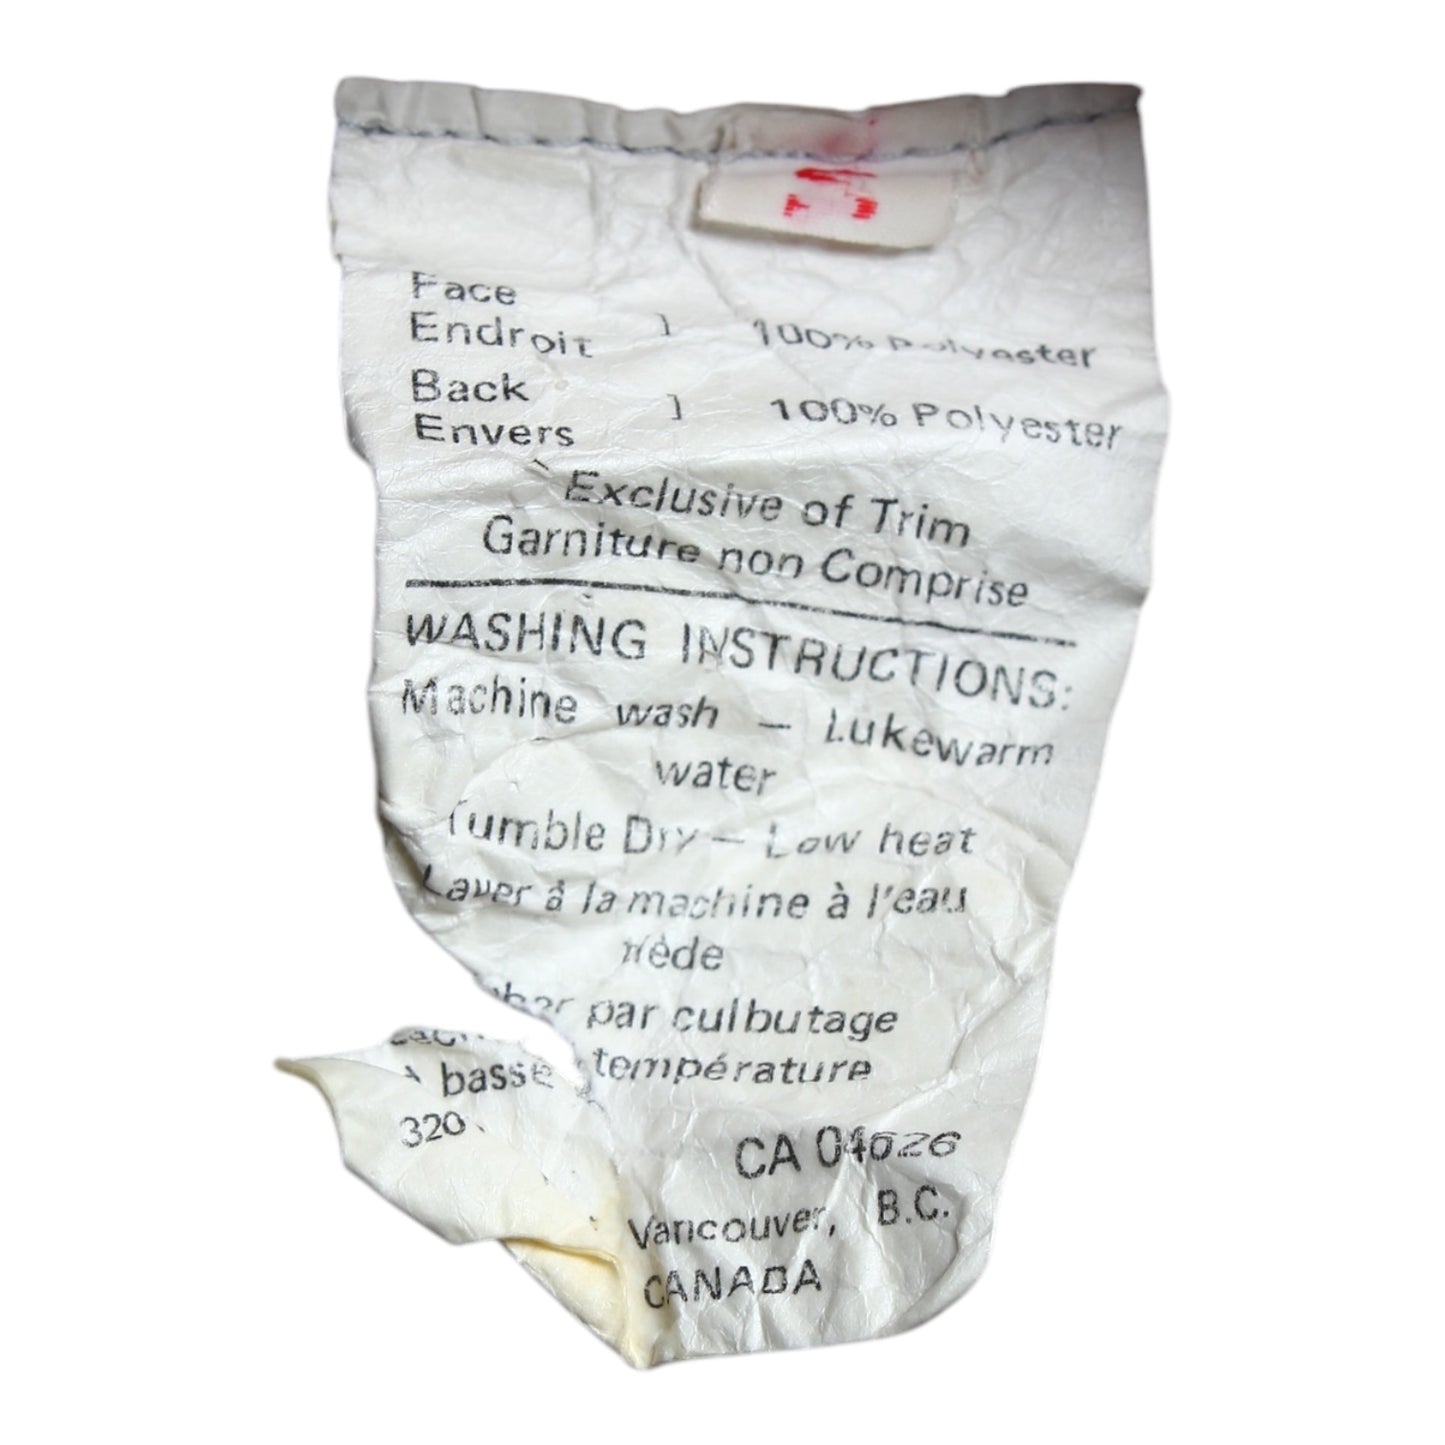 Face
Endroit ] 100% Polyester
Back
Envers ] 100% Polyester
Exclusive of Trim
Garniture non Comprise
WASHING INSTRUCTIONS:
Machine wash – Lukewarm
water
Tumble Dry – Low heat
Laver à la machine à l'eau
tiède
par culbutage
à basse température
320
CA 04626
Vancouver, B.C.
CANADA